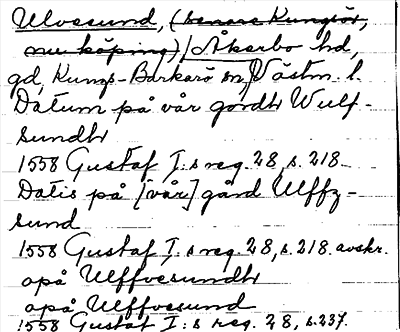 Ulvesund, (senare Kungsör,
nu köping) / Åkerbo hd,
gd, Kungs-Barkarö sn, Västm. l.
Datum på vår gordh Wulf-
sundh
1558 Gustaf I:s reg. 28, s. 218.
Datis på [vår] gård Ulffz-
sund
1558 Gustaf I:s reg. 28, s. 218. avskr.
opå Ulffvesundh
opå Ulffvesund
1558 Gustaf I:s reg. 28, s. 237.